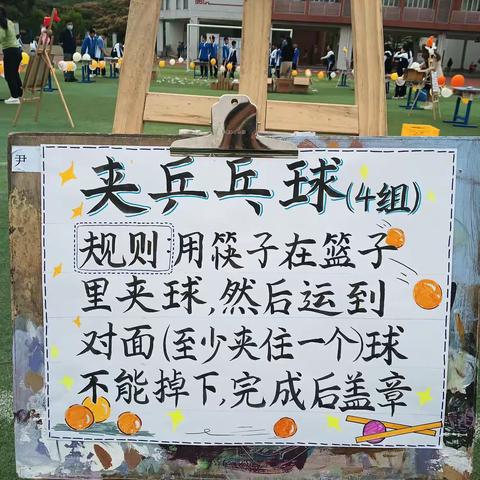 尹
夹乒乓球(4组)
规则 用筷子在篮子
里夹球,然后运到
对面(至少夹住一个)球
不能掉下,完成后盖章